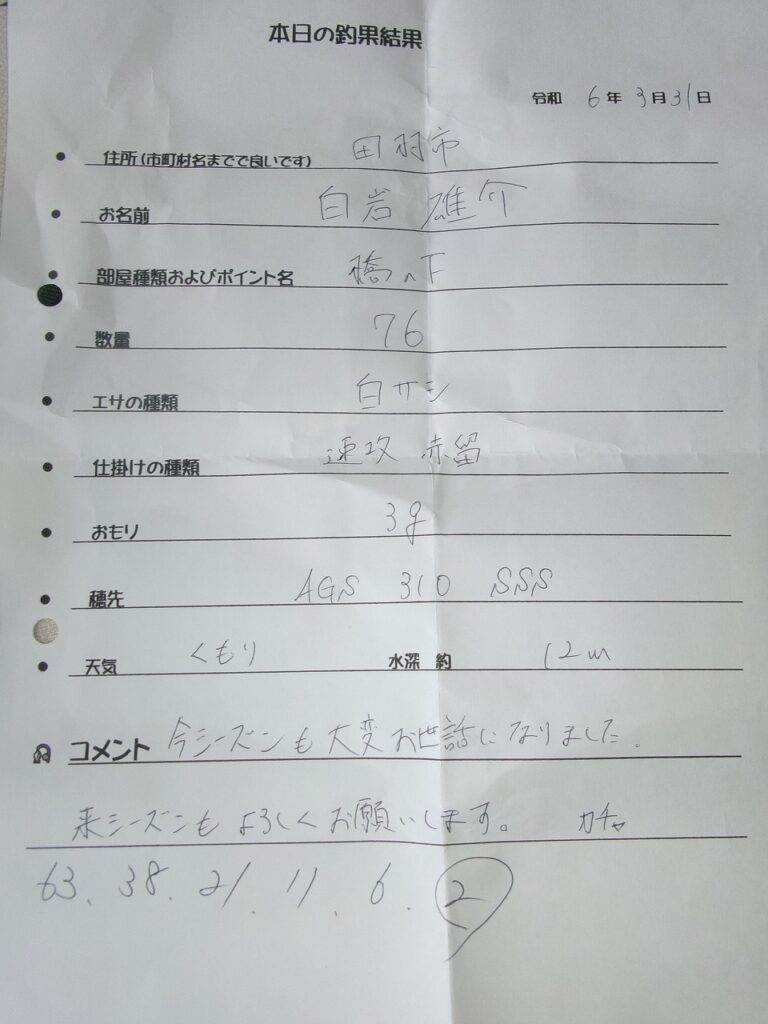 本日の釣果結果
令和 6年 3月 31日
住所(市町村名までで良いです) 田羽市
お名前 白岩 雄介
部屋種類およびポイント名 橋ノ下
数量 76
エサの種類 白サシ
仕掛けの種類 速攻 赤留
おもり 3g
穂先 AGS 310 SSS
天気 くもり 水深 約 12m
コメント 今シーズンも大変お世話になりました.
来シーズンもよろしくお願いします。
63. 38. 21. 11. 6. 2